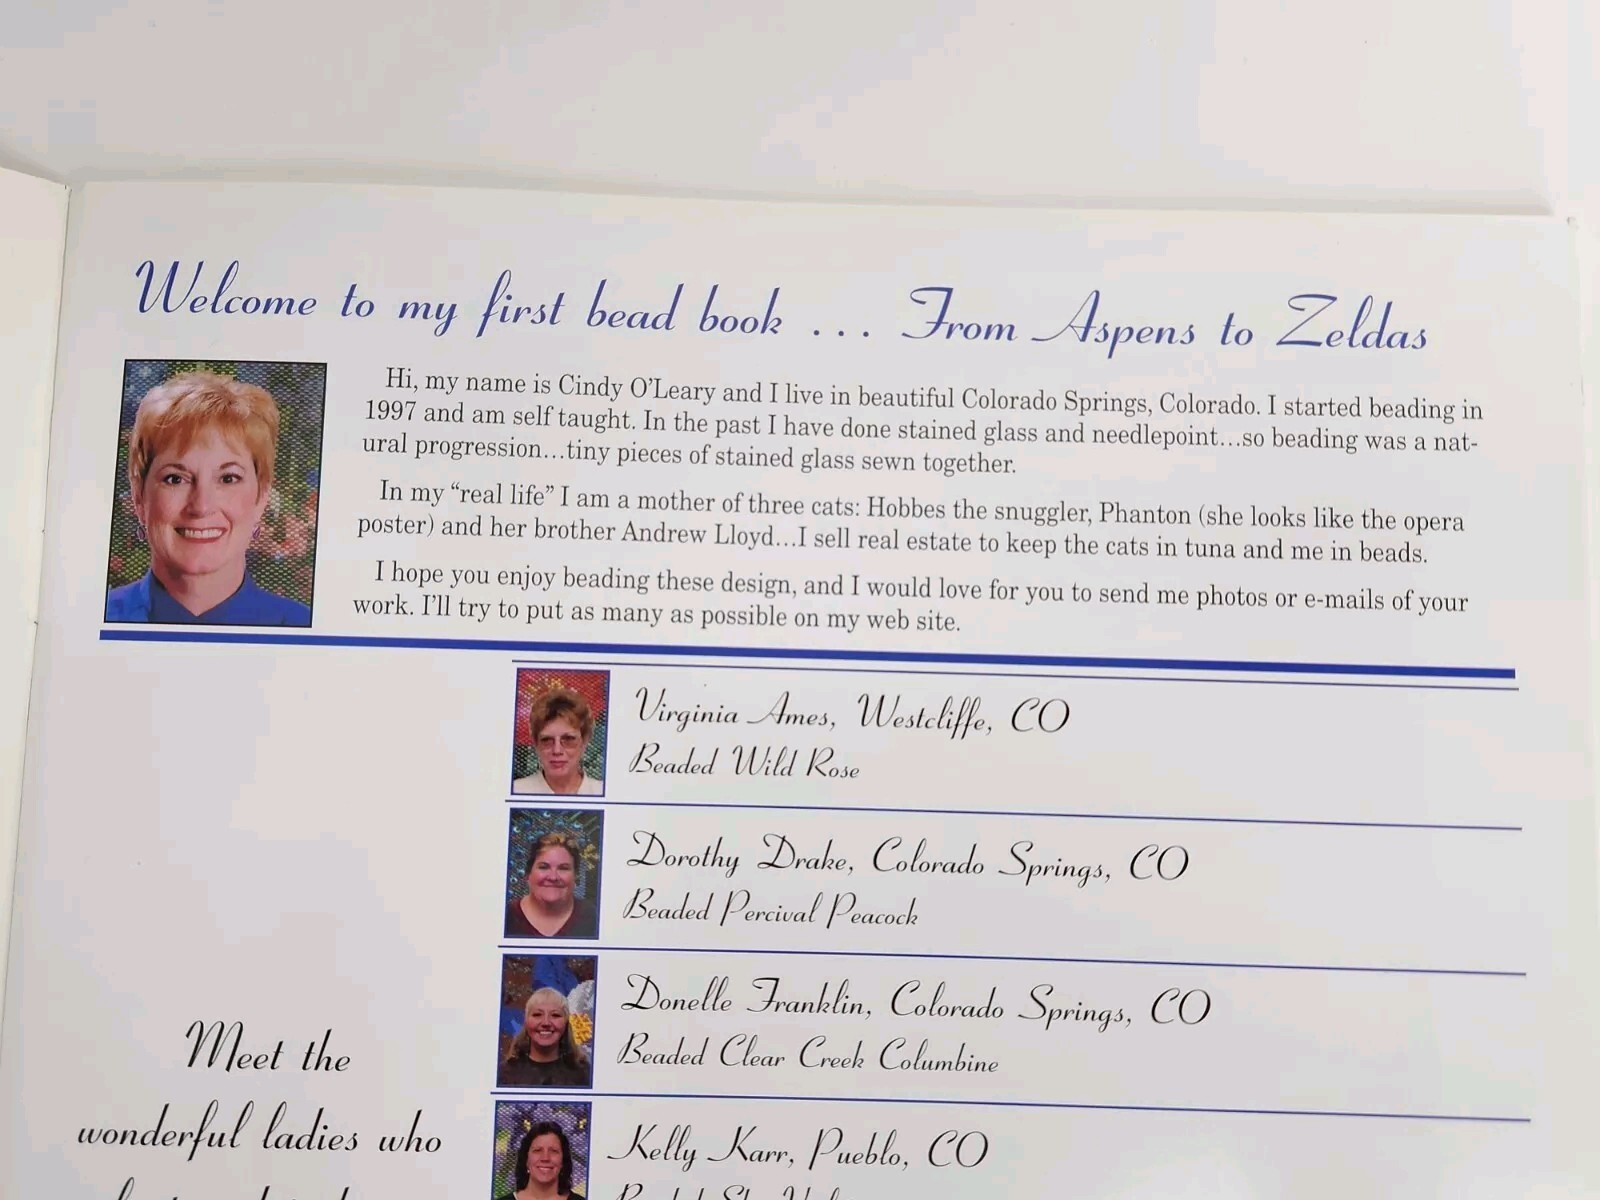 Welcome to my first bead book ... From Aspens to Zeldas
Hi, my name is Cindy O'Leary and I live in beautiful Colorado Springs, Colorado. I started beading in
1997 and am self taught. In the past I have done stained glass and needlepoint...so beading was a nat-
ural progression...tiny pieces of stained glass sewn together.
In my “real life” I am a mother of three cats: Hobbes the snuggler, Phanton (she looks like the opera
poster) and her brother Andrew Lloyd...I sell real estate to keep the cats in tuna and me in beads.
I hope you enjoy beading these design, and I would love for you to send me photos or e-mails of your
work. I'll try to put as many as possible on my web site.
Virginia Ames, Westcliffe, CO
Beaded Wild Rose
Dorothy Drake, Colorado Springs, CO
Beaded Percival Peacock
Donelle Franklin, Colorado Springs, CO
Beaded Clear Creek Columbine
Kelly Karr, Pueblo, CO
Meet the
wonderful ladies who